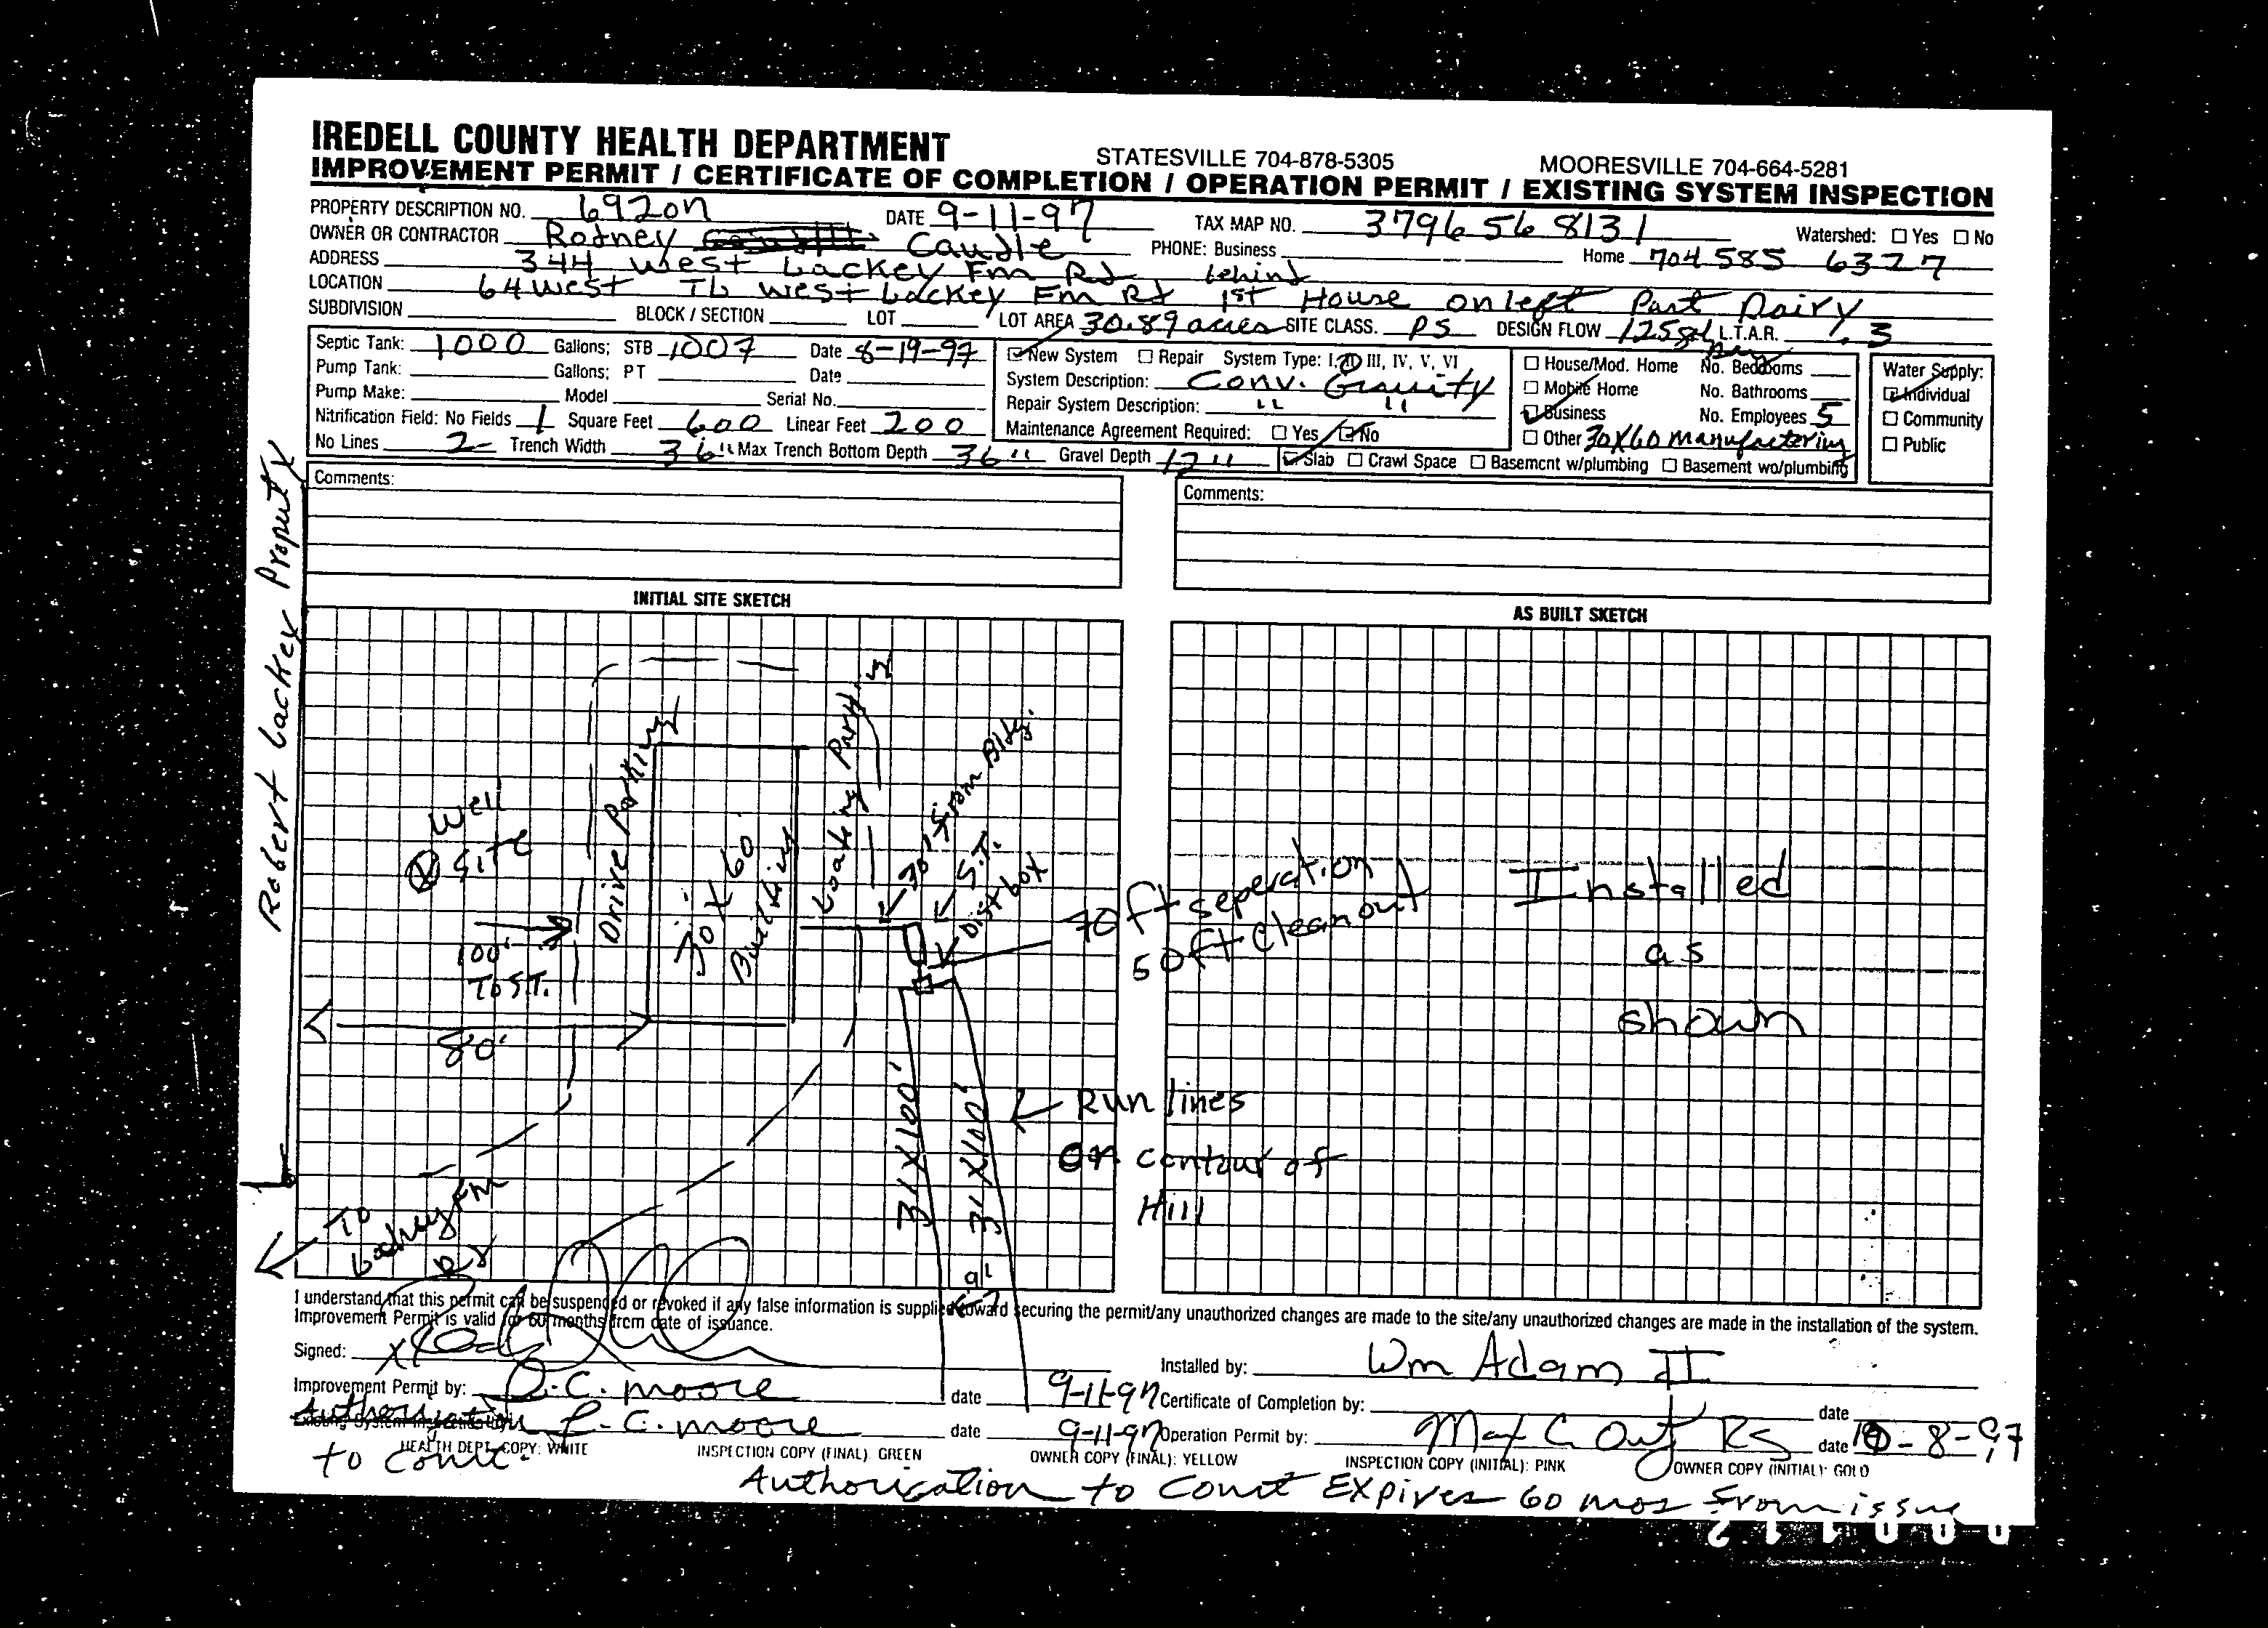 IREDELL COUNTY HEALTH DEPARTMENT STATESVILLE 704-878-5305 MOORESVILLE 704-664-5281
IMPROVEMENT PERMIT / CERTIFICATE OF COMPLETION / OPERATION PERMIT / EXISTING SYSTEM INSPECTION
PROPERTY DESCRIPTION NO. 6920n DATE 9-11-97 TAX MAP NO. 3796 56 8131 Watershed: ☐ Yes ☐ No
OWNER OR CONTRACTOR Rodney Caudle PHONE: Business Home 704 585 6327
ADDRESS 344 West Lackey Fm Rd behind
LOCATION 64 West TL West Lackey Fm Rd 1st House on left Past Dairy
SUBDIVISION BLOCK / SECTION LOT LOT AREA 30.89 acres SITE CLASS. PS DESIGN FLOW 125 gal L.T.A.R. .3
Septic Tank: 1000 Gallons; STB 1007 Date 8-19-97
Pump Tank: Gallons; PT Date
Pump Make: Model Serial No.
Nitrification Field: No Fields 1 Square Feet 600 Linear Feet 200
No Lines 2 Trench Width 36" Max Trench Bottom Depth 36" Gravel Depth 12"
☑ New System ☐ Repair System Type: I, II, III, IV, V, VI
System Description: Conv. Gravity
Repair System Description: " "
Maintenance Agreement Required: ☐ Yes ☑ No
☑ Slab ☐ Crawl Space ☐ Basement w/plumbing ☐ Basement wo/plumbing
☐ House/Mod. Home No. Bedrooms
☐ Mobile Home No. Bathrooms
☑ Business No. Employees 5
☐ Other 30X60 manufactering
Water Supply:
☑ Individual
☐ Community
☐ Public
Comments:
Comments:
INITIAL SITE SKETCH
AS BUILT SKETCH
Robert Lackey Property
Well
Site
100'
To S.T.
80'
Drive Parking
30 X 60
Building
Loading
30' from Bldg.
S.T.
Dist box
70 ft seperation
50 ft Cleanout
3' X 100'
3' X 100'
9'
Run lines
on contour of
Hill
To
Lackey Fm
Rd
Installed
as
shown
I understand that this permit can be suspended or revoked if any false information is supplied toward securing the permit/any unauthorized changes are made to the site/any unauthorized changes are made in the installation of the system.
Improvement Permit is valid for 60 months from date of issuance.
Signed: X
Installed by: Wm Adam II
Improvement Permit by: R.C. Moore date 9-11-97
Certificate of Completion by: date
Authorization R.C. Moore date 9-11-97
to Const.
Operation Permit by: RS date 10-8-97
HEALTH DEPT. COPY: WHITE INSPECTION COPY (FINAL): GREEN OWNER COPY (FINAL): YELLOW INSPECTION COPY (INITIAL): PINK OWNER COPY (INITIAL): GOLD
Authorization to Const Expires 60 mos from issue